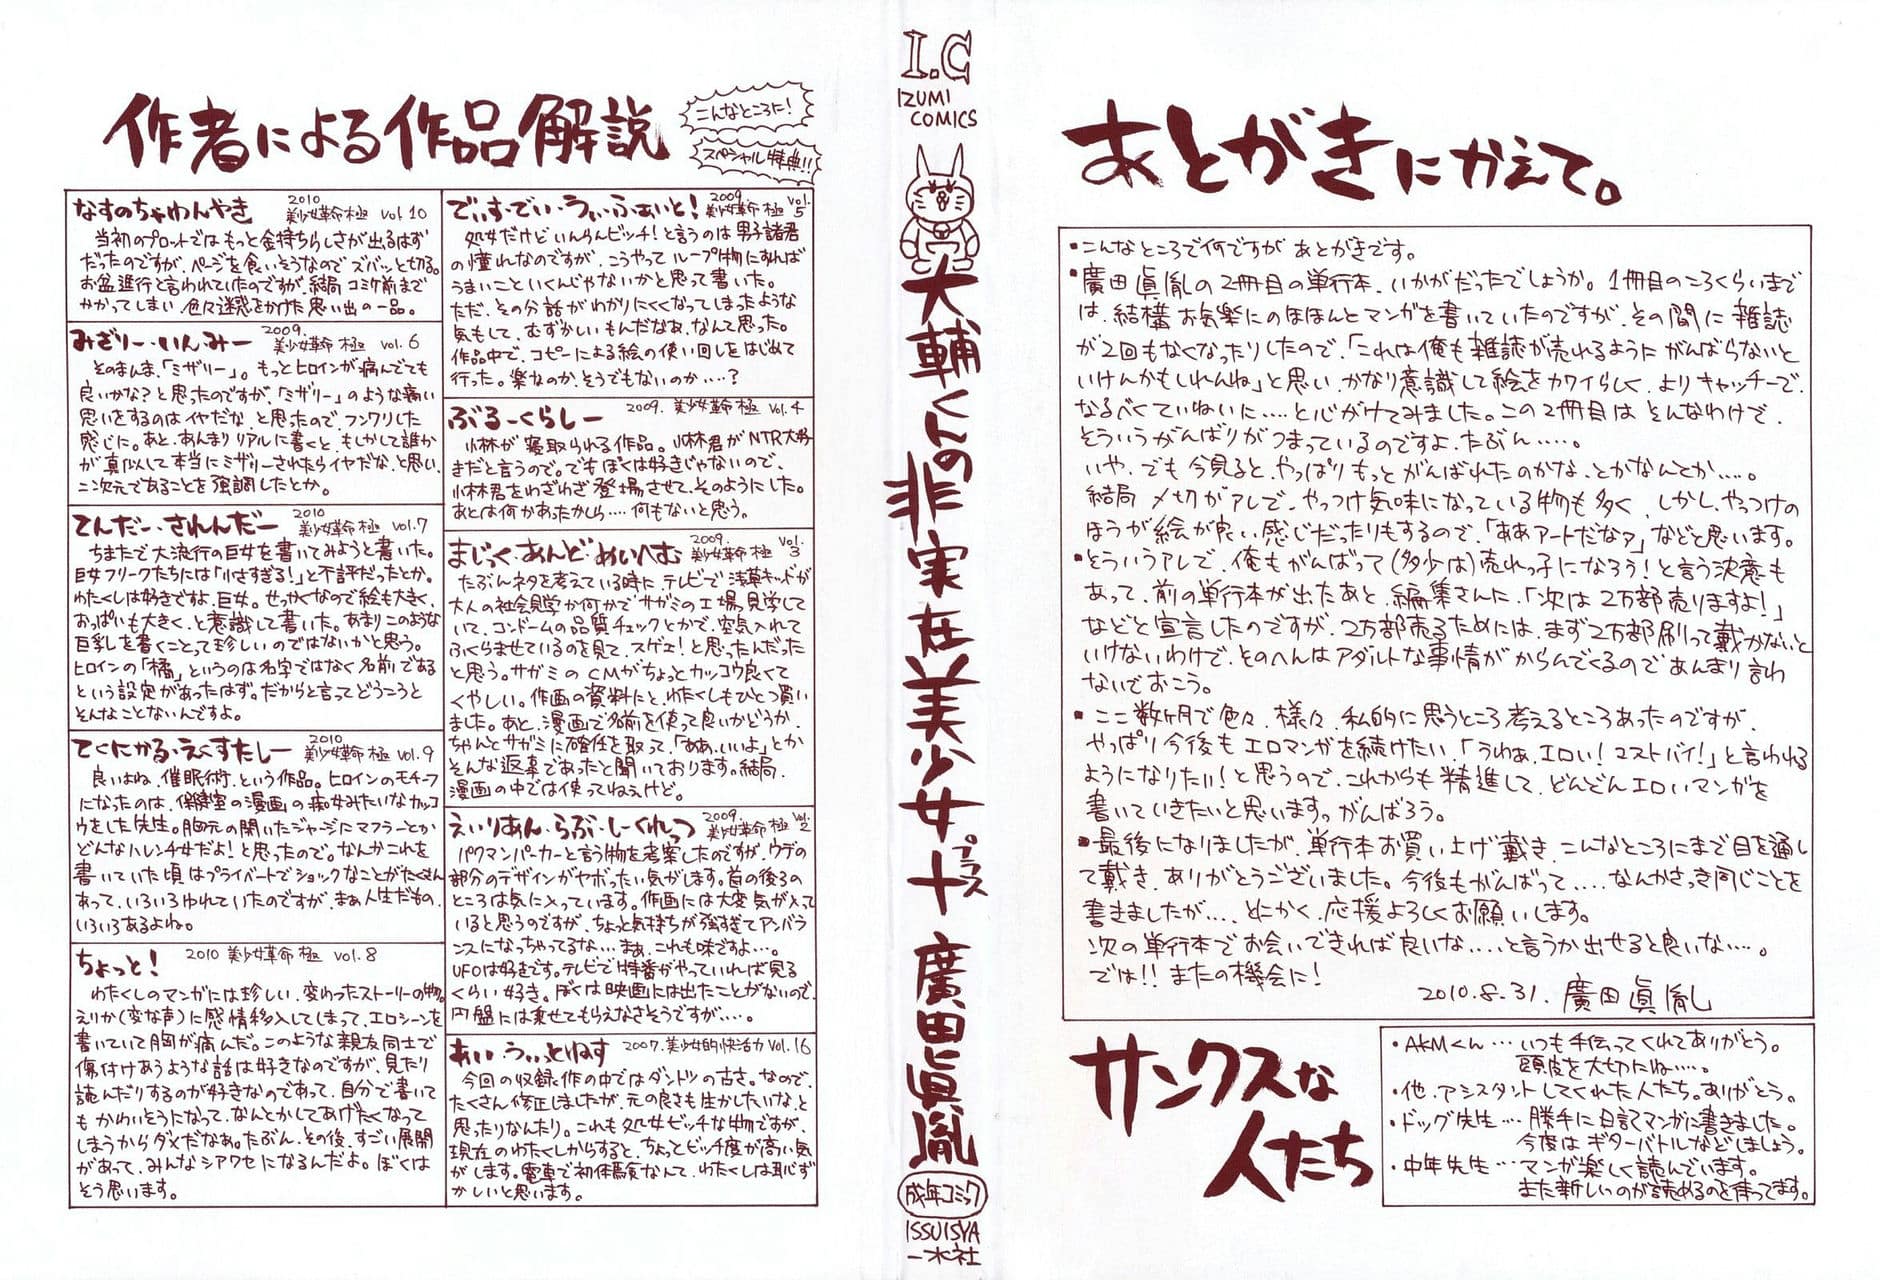 作者による作品解説
こんなところに!
スペシャル特典!!
なすのちゃわんやき 2010 美少女革命 極 vol.10
当初のプロットではもっと金持ちらしさが出るはず
だったのですが、ページを食いそうなのでズバッと切る。
お盆進行と言われていたのですが、結局コミケ前まで
かかってしまい、色々迷惑をかけた思い出の一品。
みざりー・いんみー 2009. 美少女革命 極 vol.6
そのまんま、「ミザリー」。もっとヒロインが病んでても
良いかな?と思ったのですが、「ミザリー」のような痛い
思いをするのはイヤだな、と思ったので、フンワリした
感じに。あと、あんまりリアルに書くと、もしかして誰か
が真似して本当にミザリーされたらイヤだな、と思い、
二次元であることを強調したとか。
てんだー・されんだー 2010 美少女革命 極 vol.7
ちまたで大流行の巨女を書いてみようと書いた。
巨女フリークたちには「小さすぎる!」と不評だったとか。
わたくしは好きですよ、巨女。せっかくなので絵も大きく、
おっぱいも大きく、と意識して書いた。あまりこのような
巨乳を書くことって珍しいのではないかと思う。
ヒロインの「橘」というのは名字ではなく名前である
という設定があったはず。だからと言ってどうこうと
そんなことないんですよ。
てくにかる・えくすたしー 2010 美少女革命 極 vol.9
良いよね、催眠術、という作品。ヒロインのモチーフ
になったのは、保健室の漫画の痴女みたいなカッコ
ウをした先生。胸元の開いたジャージにマフラーとか
どんなハレンチ女だよ!と思ったので。なんかこれを
書いていた頃はプライベートでショックなことがたくさん
あって、いろいろゆれていたのですが、まぁ人生だもの、
いろいろあるよね。
ちょっと! 2010 美少女革命 極 vol.8
わたくしのマンガには珍しい、変わったストーリーの物。
えりか(変な声)に感情移入してしまって、エロシーンを
書いていて胸が痛んだ。このような親友同士で
傷付けあうような話は好きなのですが、見たり
読んだりするのが好きなのであって、自分で書いて
もかわいそうになって、なんとかしてあげたくなって
しまうからダメだなあ。たぶん、その後、すごい展開
があって、みんなシアワセになるんだよ。ぼくは
そう思います。
でぃす・でぃ・うぃ・ふぁいと! 2009. 美少女革命 極 vol.5
処女だけどいんらんビッチ!と言うのは男子諸君
の憧れなのですが、こうやってループ物にすれば
うまいこといくんじゃないかと思って書いた。
ただ、その分話がわかりにくくなってしまったような
気もして、むずかしいもんだなぁ、なんて思った。
作品中で、コピーによる絵の使い回しをはじめて
行った。楽なのか、そうでもないのか・・・・?
ぶるーくらしー 2009. 美少女革命 極 vol.4
小林が寝取られる作品。小林君がNTR大好
きだと言うので。でもぼくは好きじゃないので、
小林君をわざわざ登場させて、そのようにした。
あとは何かあったかしら・・・・何もないと思う。
まじっく・あんど・めいへむ 2009. 美少女革命 極 vol.3
たぶんネタを考えている時に、テレビで浅草キッドが
大人の社会見学か何かでサガミの工場へ見学して
いて、コンドームの品質チェックとかで、空気入れて
ふくらませているのを見て、スゲェ!と思ったんだった
と思う。サガミのCMがちょっとカッコウ良くて
くやしい。作画の資料にと、わたくしもひとつ買い
ました。あと、漫画で名前を使って良いかどうか、
ちゃんとサガミに確認を取って、「ああ、いいよ」とか
そんな返事であったと聞いております。結局、
漫画の中では使ってねぇけど。
えいりあん・らぶ・しーくれっつ 2009. 美少女革命 極 vol.2
パクマンパーカーと言う物を考案したのですが、ウデの
部分のデザインがヤボったい気がします。首の後ろの
ところは気に入っています。作画には大変気が入って
いると思うのですが、ちょっと気持ちが強すぎてアンバラ
ンスになっちゃってるな・・・まぁ、これも味ですよ・・・。
UFOは好きです。テレビで特番がやっていれば見る
くらい好き。ぼくは映画には出たことがないので、
円盤には乗せてもらえなさそうですが・・・・。
あい・うぃっとねす 2007. 美少女的快活力 vol.16
今回の収録作の中ではダントツの古さ。なので、
たくさん修正しましたが、元の良さも生かしたいな、と
思ったりなんたり。これも処女ビッチな物ですが、
現在のわたくしからすると、ちょっとビッチ度が高い気
がします。電車で初体験なんて、わたくしは恥ず
かしいと思います。
I.C
IZUMI
COMICS
大輔くんの非実在美少女十
プラス
廣田眞胤
成年コミック
ISSUISYA
一水社
あとがきにかえて。
・こんなところで何ですが、あとがきです。
・廣田眞胤の2冊目の単行本、いかがだったでしょうか。1冊目のころくらいまで
は、結構お気楽にのほほんとマンガを書いていたのですが、その間に雑誌
が2回もなくなったりしたので、「これは俺も雑誌が売れるようにがんばらないと
いけんかもしれんね」と思い、かなり意識して絵をカワイらしく、よりキャッチーで、
なるべくていねいに・・・・と心がけてみました。この2冊目はそんなわけで、
そういうがんばりがつまっているのですよ、たぶん・・・・・。
いや、でも今見ると、やっぱりもっとがんばれたのかな、とかなんとか・・・・。
結局〆切がアレで、やっつけ気味になっている物も多く、しかし、やっつけの
ほうが絵が良い感じだったりもするので、「ああアートだなァ」などと思います。
・そういうアレで、俺もがんばって(多少は)売れっ子になろう!と言う決意も
あって、前の単行本が出たあと、編集さんに、「次は2万部売りますよ!」
などと宣言したのですが、2万部売るためには、まず2万部刷って戴かないと
いけないわけで、そのへんはアダルトな事情がからんでくるのであんまり言わ
ないでおこう。
・ここ数ヶ月で色々、様々、私的に思うところ考えるところあったのですが、
やっぱり今後もエロマンガを続けたい、「うわぁ、エロい!マストバイ!」と言われる
ようになりたい!と思うので、これからも精進して、どんどんエロいマンガを
書いていきたいと思いますっ。がんばろう。
・最後になりましたが、単行本お買い上げ戴き、こんなところにまで目を通し
て戴き、ありがとうございました。今後もがんばって・・・・なんかさっき同じことを
書きましたが・・・・とにかく、応援よろしくお願いします。
次の単行本でお会いできれば良いな・・・・と言うか出せると良いな・・・・。
では!!またの機会に!
2010.8.31. 廣田眞胤
サンクスな
人たち
・AKMくん・・・いつも手伝ってくれてありがとう。
頭皮を大切にね・・・・。
・他、アシスタントしてくれた人たち。ありがとう。
・ドッグ先生・・・・勝手に日記マンガに書きました。
今度はギターバトルなどしましょう。
・中年先生・・・マンガ楽しく読んでいます。
また新しいのが読めるのを待ってます。